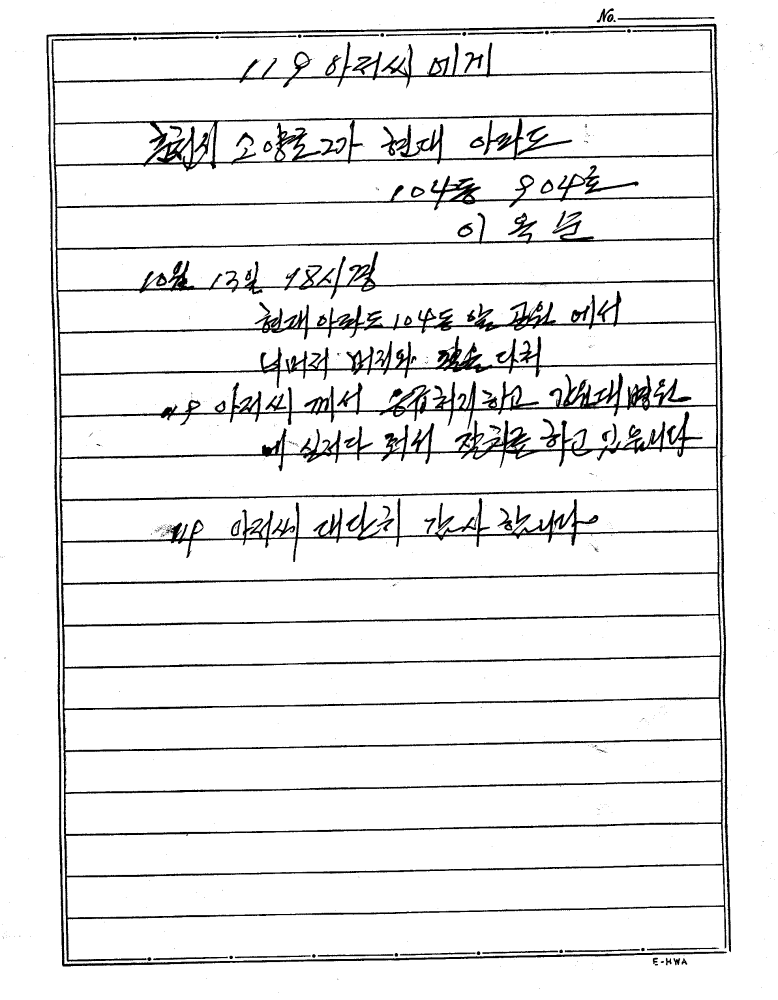 No.
119 아저씨 에게
춘천시 소양로2가 현대 아파트
104동 904호
이 옥
10월 13일 18시경
현대아파트 104동 앞 공원 에서
너머저 머리와 다처
119 아저씨 께서 응급처리하고 강원대 병원
에 실려다 줘서 잘치료하고 있읍니다
119 아저씨 대단히 감사 합니다.
E-HWA